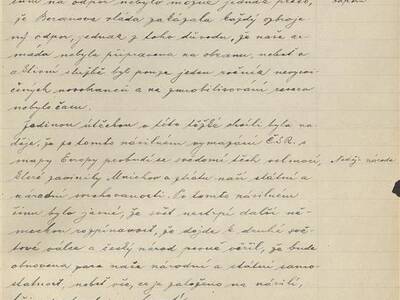 nebylo možné jednak proto,
že Beranova vláda zakázala každý ozbroje-
ný odpor, jednak z toho důvodu, že naše ar-
máda nebyla připravena na obranu, neboť v
aktivní službě byl pouze jeden ročník nevycvi-
čených nováčků a na zmobilisování reserv
nebylo času.
Jedinou útěchou v této těžké chvíli byla na-
děje, že po tomto násilném vymazání ČSR. s
mapy Evropy probudí se svědomí těch velmocí,
které zavinily Mnichov a ztrátu naší státní a
národní svrchovanosti. Po tomto násilném
činu bylo jasné, že svět nestrpí další ně-
meckou rozpínavost, že dojde k druhé svě-
tové válce a český národ pevně věřil, že bude
obnovena zase naše národní a státní samo-
statnost, neboť vše, co je založeno na násilí,
Naděje národa